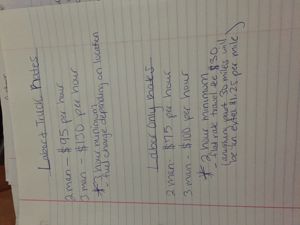 Labor & Truck Rates
2 men - $95 per hour
3 men - $130 per hour
* 2 hour minimum
- fuel charge depending on location
Labor Only Rates
2 men - $75 per hour
3 men - $100 per hour
* 2 hour minimum
- flat rate travel fee $30
(anything past 30 miles will
be an extra $1.25 per mile)